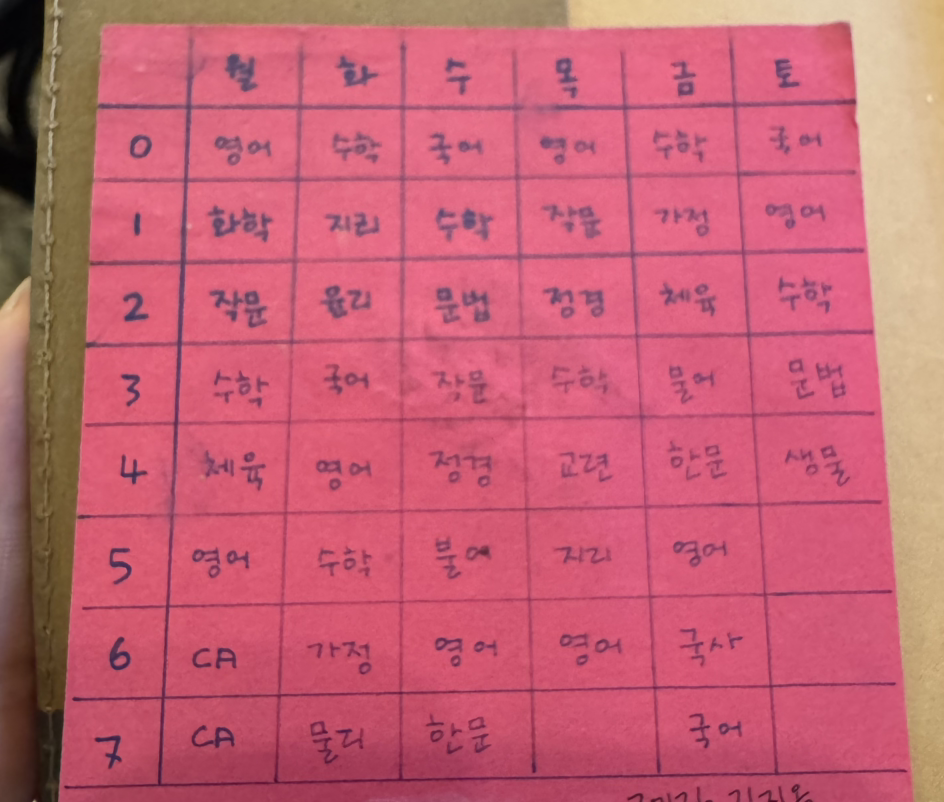 월 화 수 목 금 토
0 영어 수학 국어 영어 수학 국어
1 화학 지리 수학 작문 가정 영어
2 작문 윤리 문법 정경 체육 수학
3 수학 국어 작문 수학 불어 문법
4 체육 영어 정경 교련 한문 생물
5 영어 수학 불어 지리 영어
6 CA 가정 영어 영어 국사
7 CA 물리 한문 국어